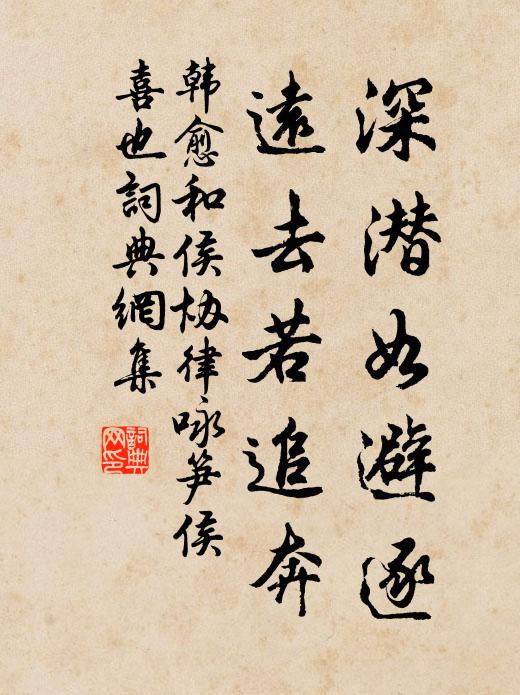 深潜如避逐
遠去若追奔
韩愈和侯协律咏笋侯
喜也詞典網集
詞典
网印